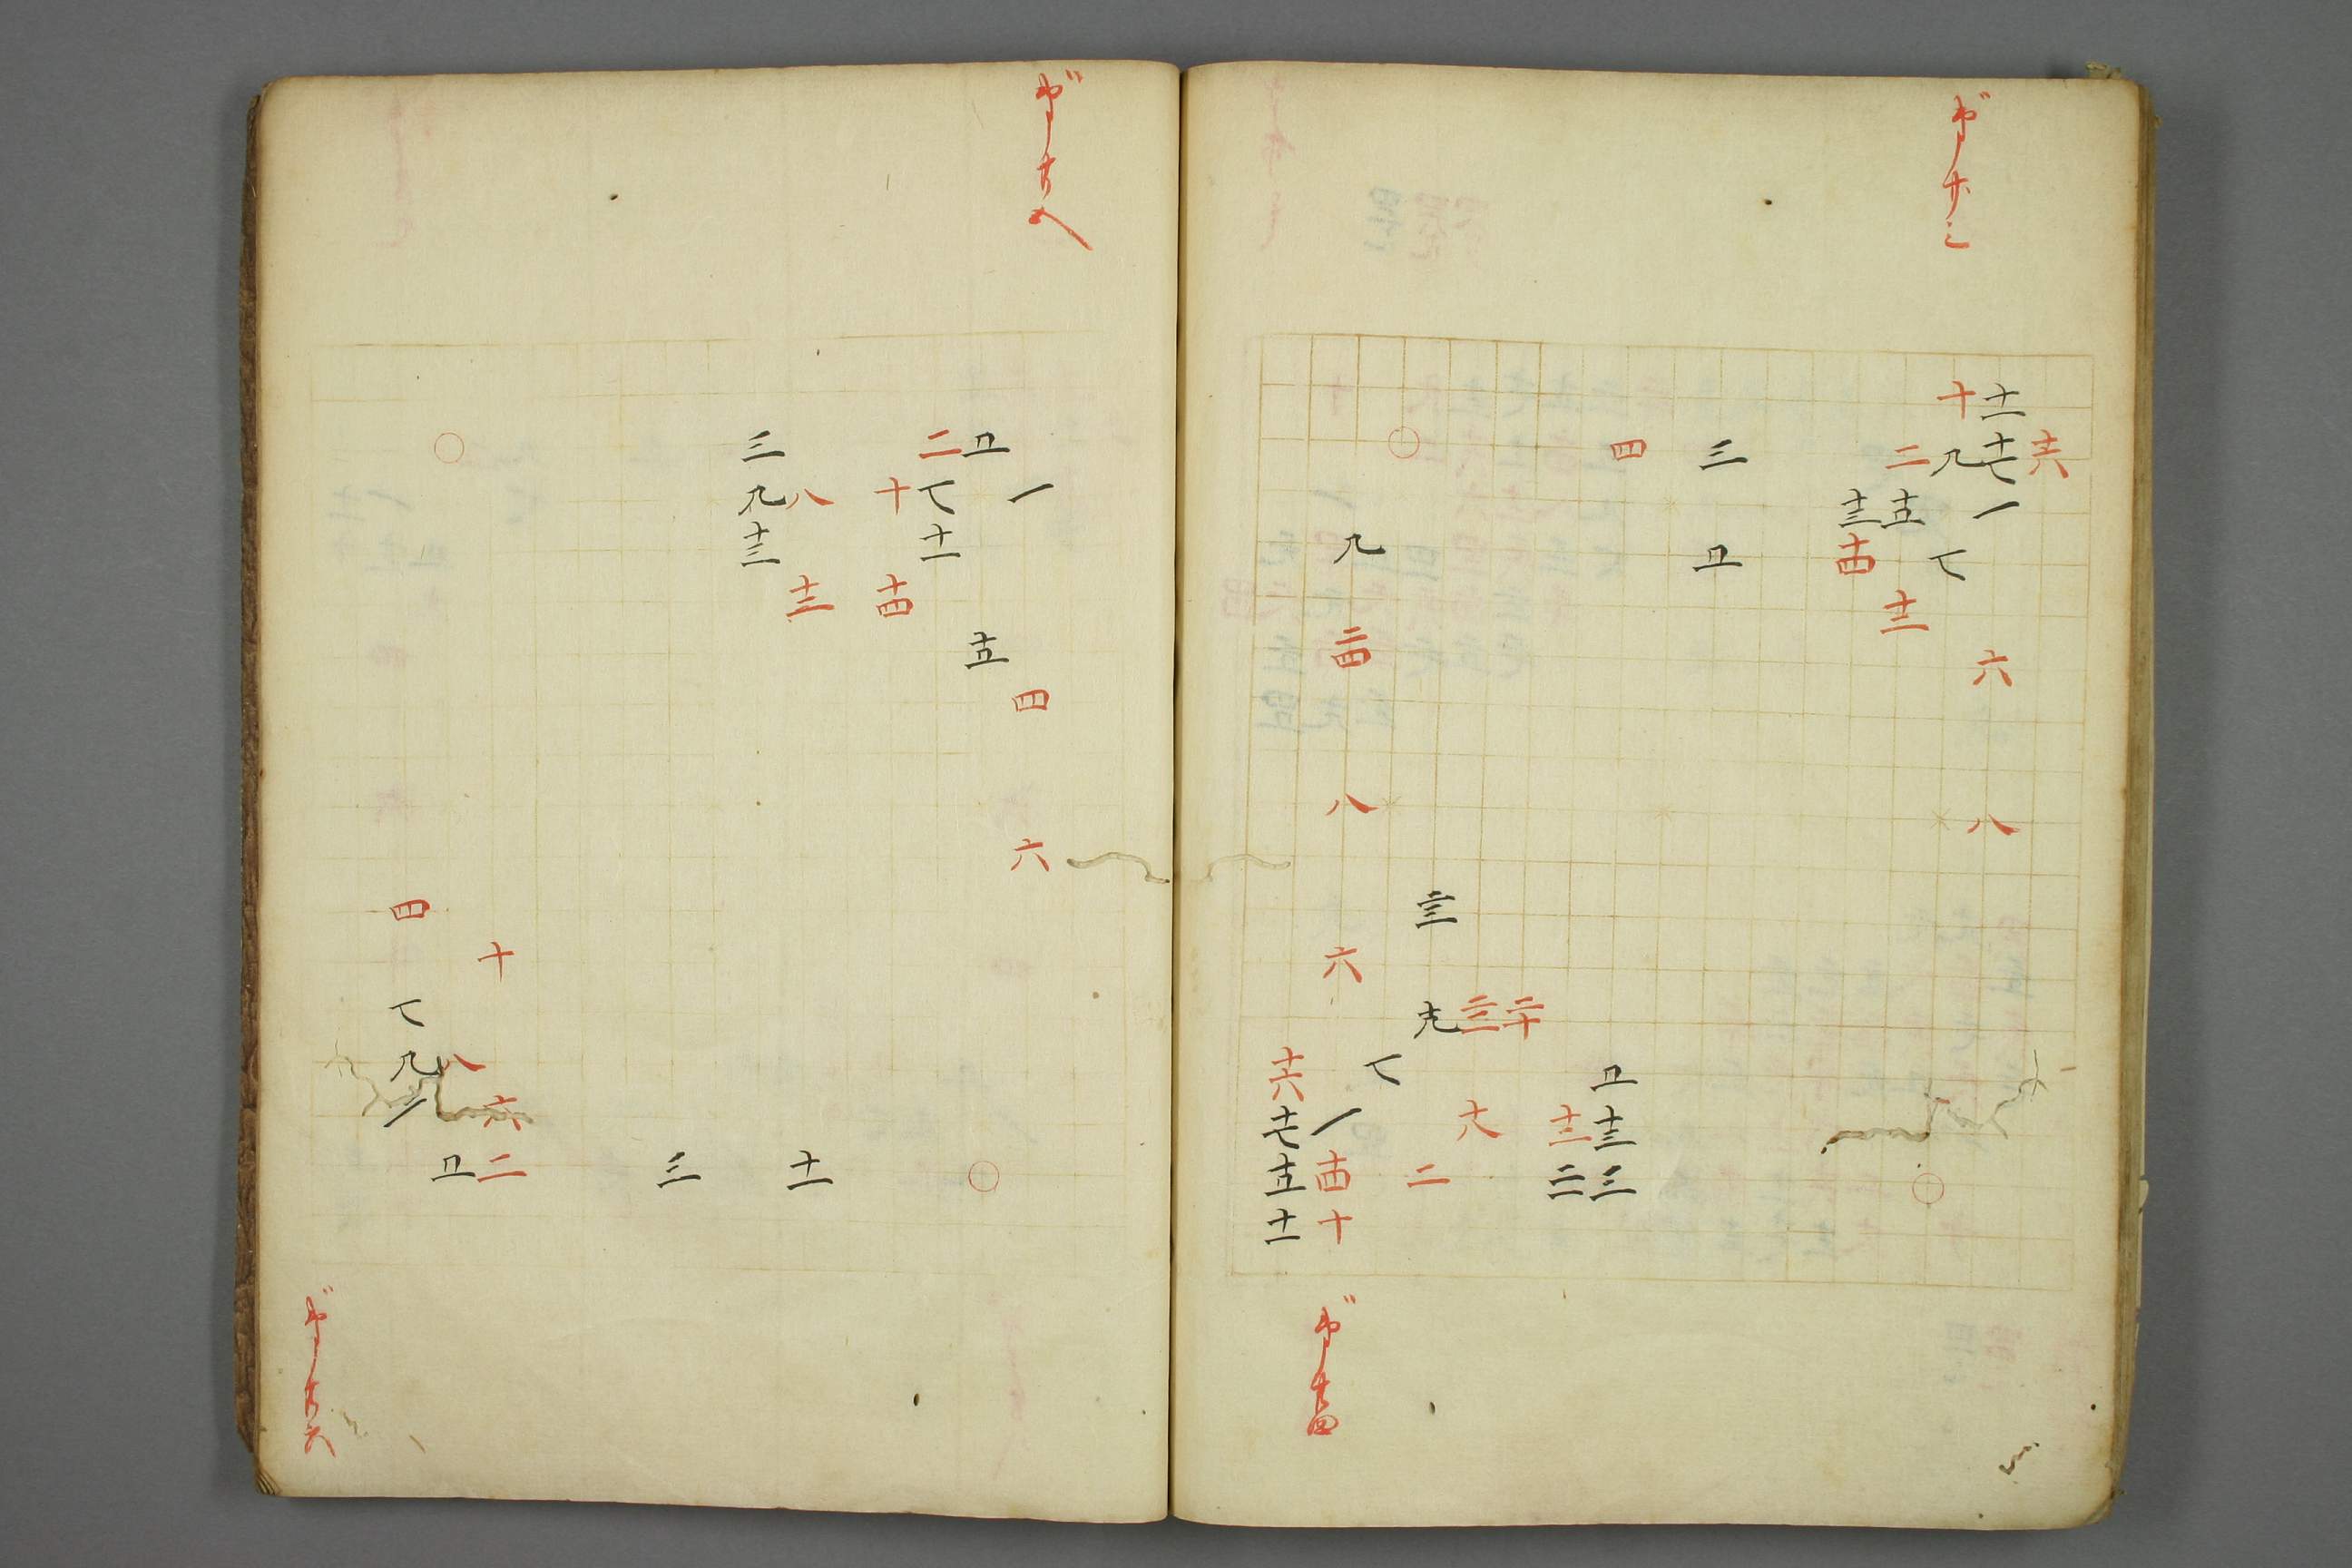 十六
十一 十七 一 六 八
十 九 七
二 十五 十二
十三 十四
三 五
四
五 十三 三
十二
二十
二十二 十八
二十三 十九 二
七
九 二十四 八 六 一 十四 十
十六 十七 十五 十一
一 四 六
五 十五
二 七 十一
十 十四
八 十二 十一
三 九 十三
三
十 六 二
八 五
四 七 九 一